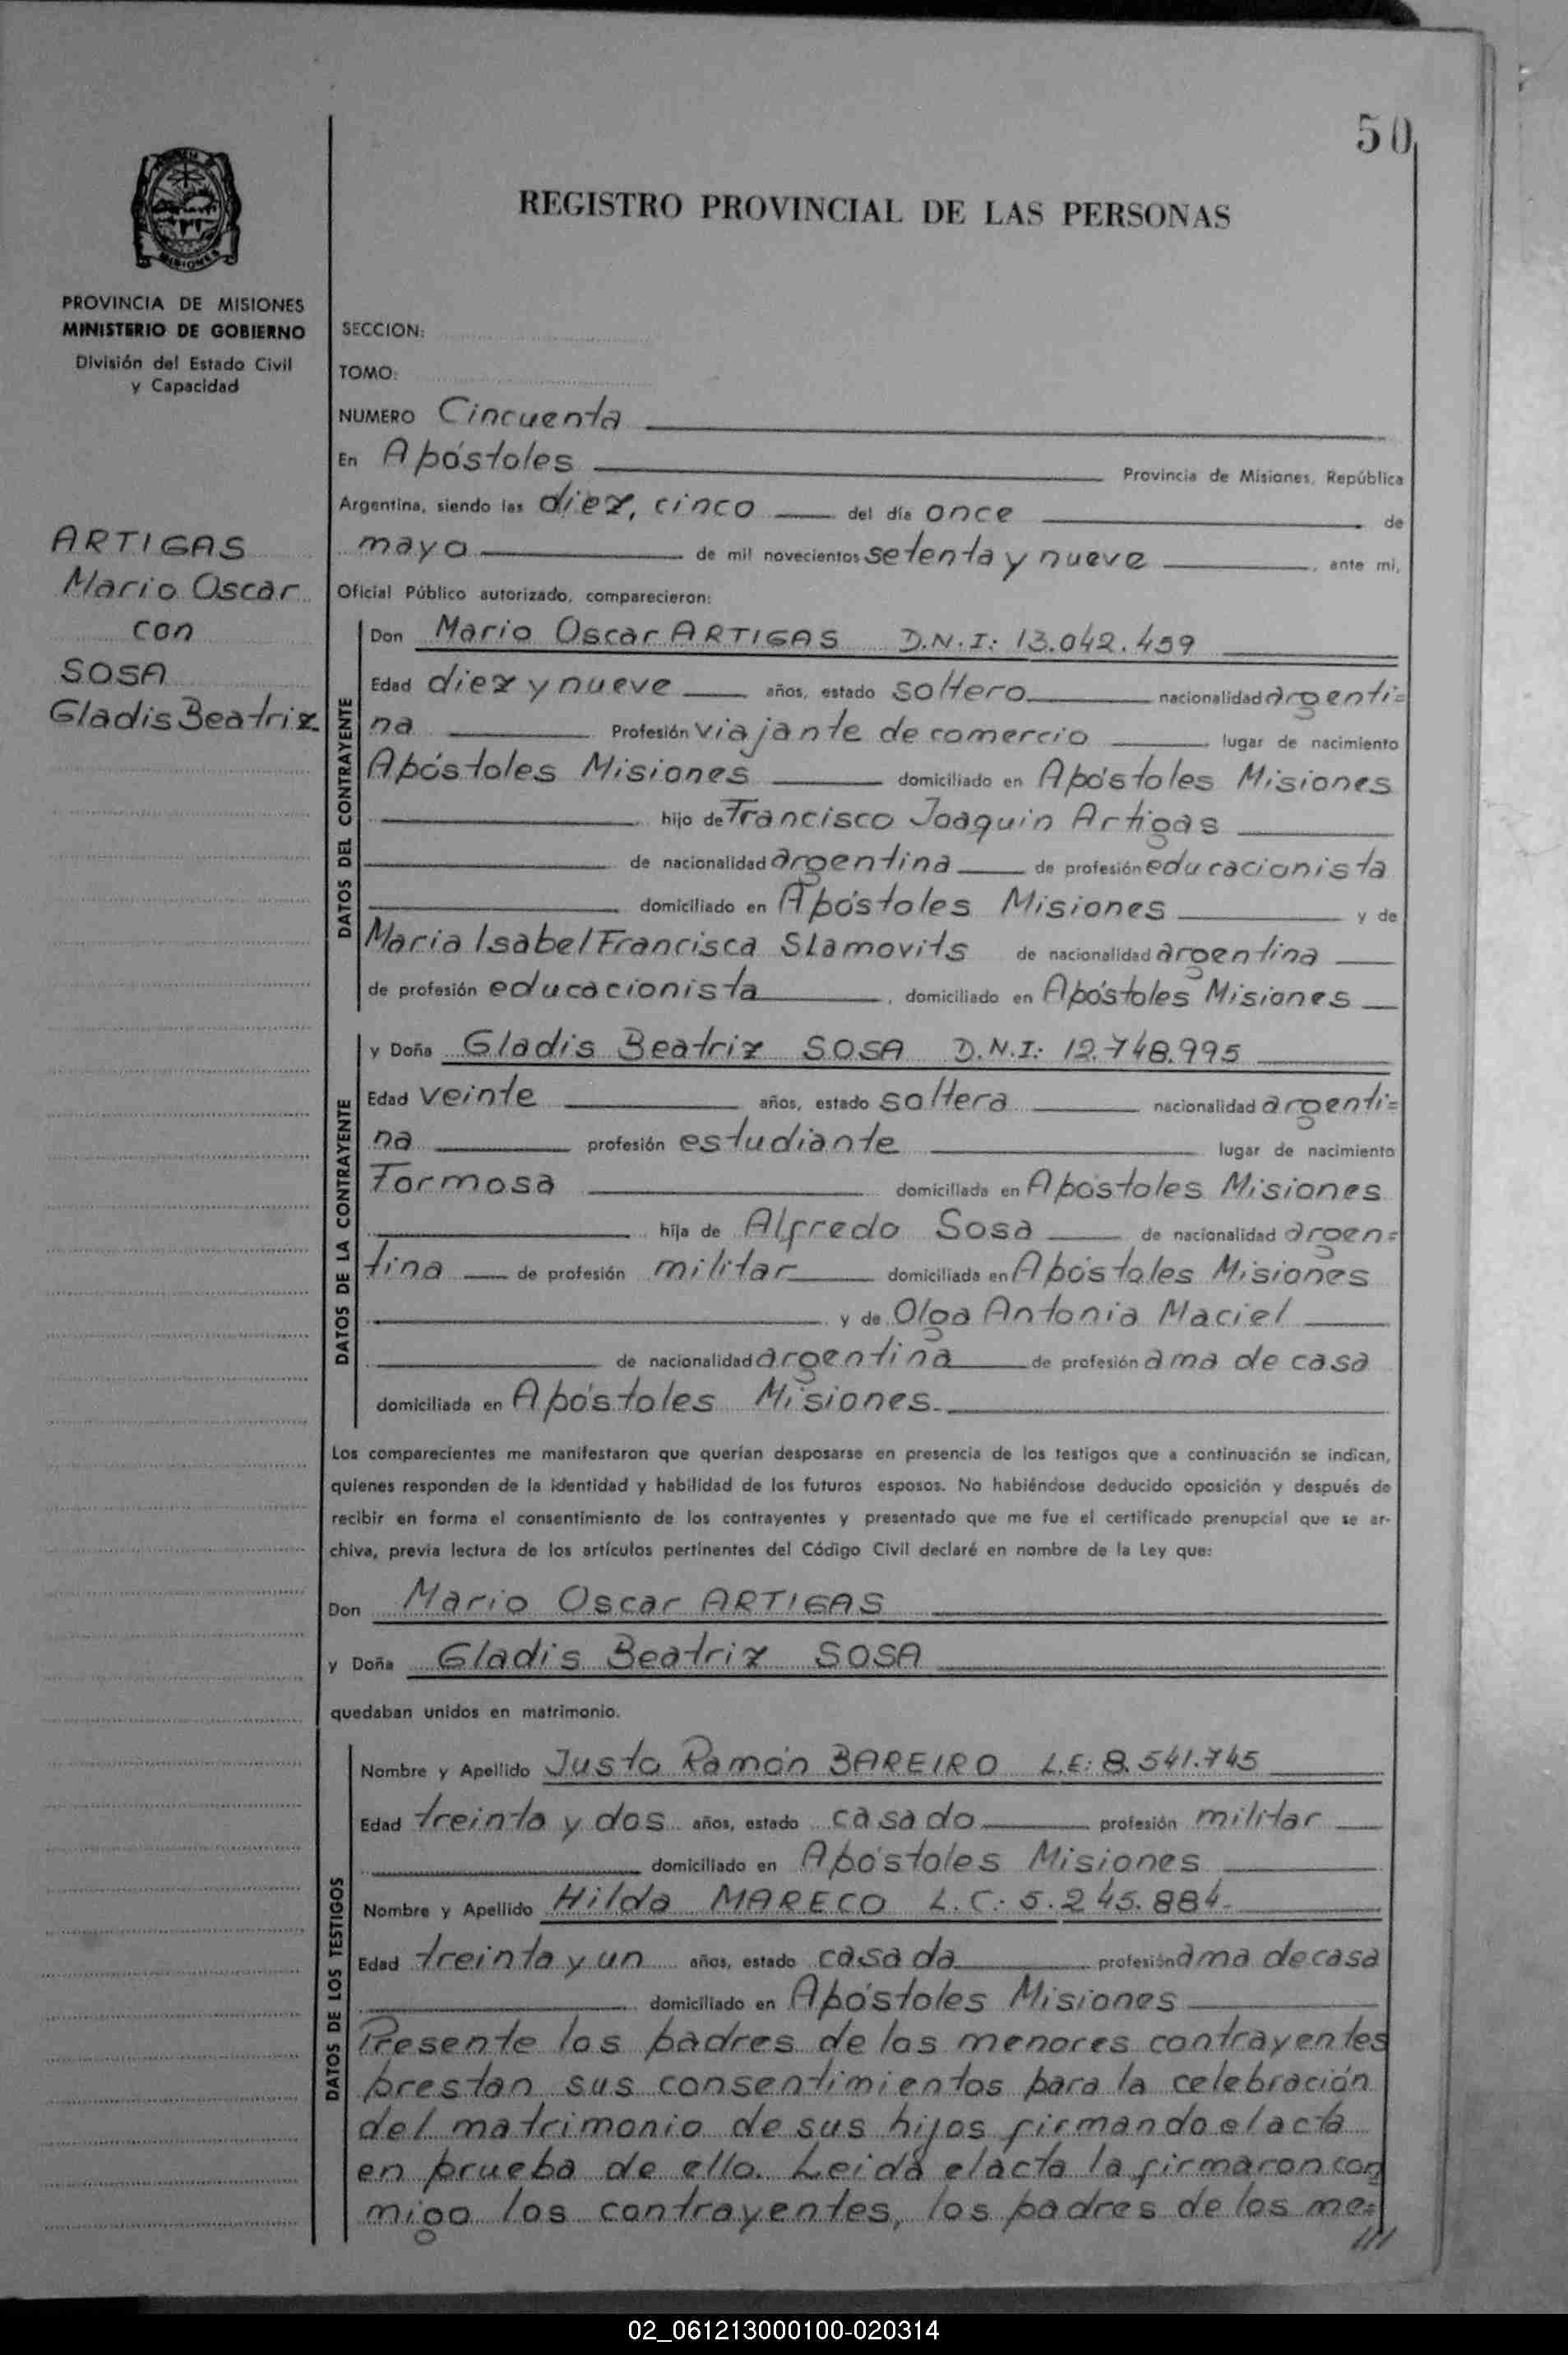 50
REGISTRO PROVINCIAL DE LAS PERSONAS
MISIONES
PROVINCIA DE MISIONES
MINISTERIO DE GOBIERNO
División del Estado Civil
y Capacidad
ARTIGAS
Mario Oscar
con
SOSA
Gladis Beatriz
SECCION:
TOMO:
NUMERO Cincuenta
En Apóstoles Provincia de Misiones, República
Argentina, siendo las diez, cinco del día once de
mayo de mil novecientos setenta y nueve, ante mi,
Oficial Público autorizado, comparecieron:
DATOS DEL CONTRAYENTE
Don Mario Oscar ARTIGAS D.N.I: 13.042.459
Edad diez y nueve años, estado soltero nacionalidad argenti=
na Profesión viajante de comercio lugar de nacimiento
Apóstoles Misiones domiciliado en Apóstoles Misiones
hijo de Francisco Joaquin Artigas
de nacionalidad argentina de profesión educacionista
domiciliado en Apóstoles Misiones y de
Maria Isabel Francisca Slamovits de nacionalidad argentina
de profesión educacionista, domiciliado en Apóstoles Misiones
DATOS DE LA CONTRAYENTE
y Doña Gladis Beatriz SOSA D.N.I: 12.748.995
Edad veinte años, estado soltera nacionalidad argenti=
na profesión estudiante lugar de nacimiento
Formosa domiciliada en Apóstoles Misiones
hija de Alfredo Sosa de nacionalidad argen=
tina de profesión militar domiciliada en Apóstoles Misiones
y de Olga Antonia Maciel
de nacionalidad argentina de profesión ama de casa
domiciliada en Apóstoles Misiones.
Los comparecientes me manifestaron que querían desposarse en presencia de los testigos que a continuación se indican,
quienes responden de la identidad y habilidad de los futuros esposos. No habiéndose deducido oposición y después de
recibir en forma el consentimiento de los contrayentes y presentado que me fue el certificado prenupcial que se ar-
chiva, previa lectura de los artículos pertinentes del Código Civil declaré en nombre de la Ley que:
Don Mario Oscar ARTIGAS
y Doña Gladis Beatriz SOSA
quedaban unidos en matrimonio.
DATOS DE LOS TESTIGOS
Nombre y Apellido Justo Ramón BAREIRO L.E: 8.541.745
Edad treinta y dos años, estado casado profesión militar
domiciliado en Apóstoles Misiones
Nombre y Apellido Hilda MARECO L.C: 5.245.884.
Edad treinta y un años, estado casada profesión ama de casa
domiciliado en Apóstoles Misiones
Presente los padres de los menores contrayentes
prestan sus consentimientos para la celebración
del matrimonio de sus hijos firmando el acta
en prueba de ello. Leida el acta la firmaron con
migo los contrayentes, los padres de los me=
///
02_061213000100-020314